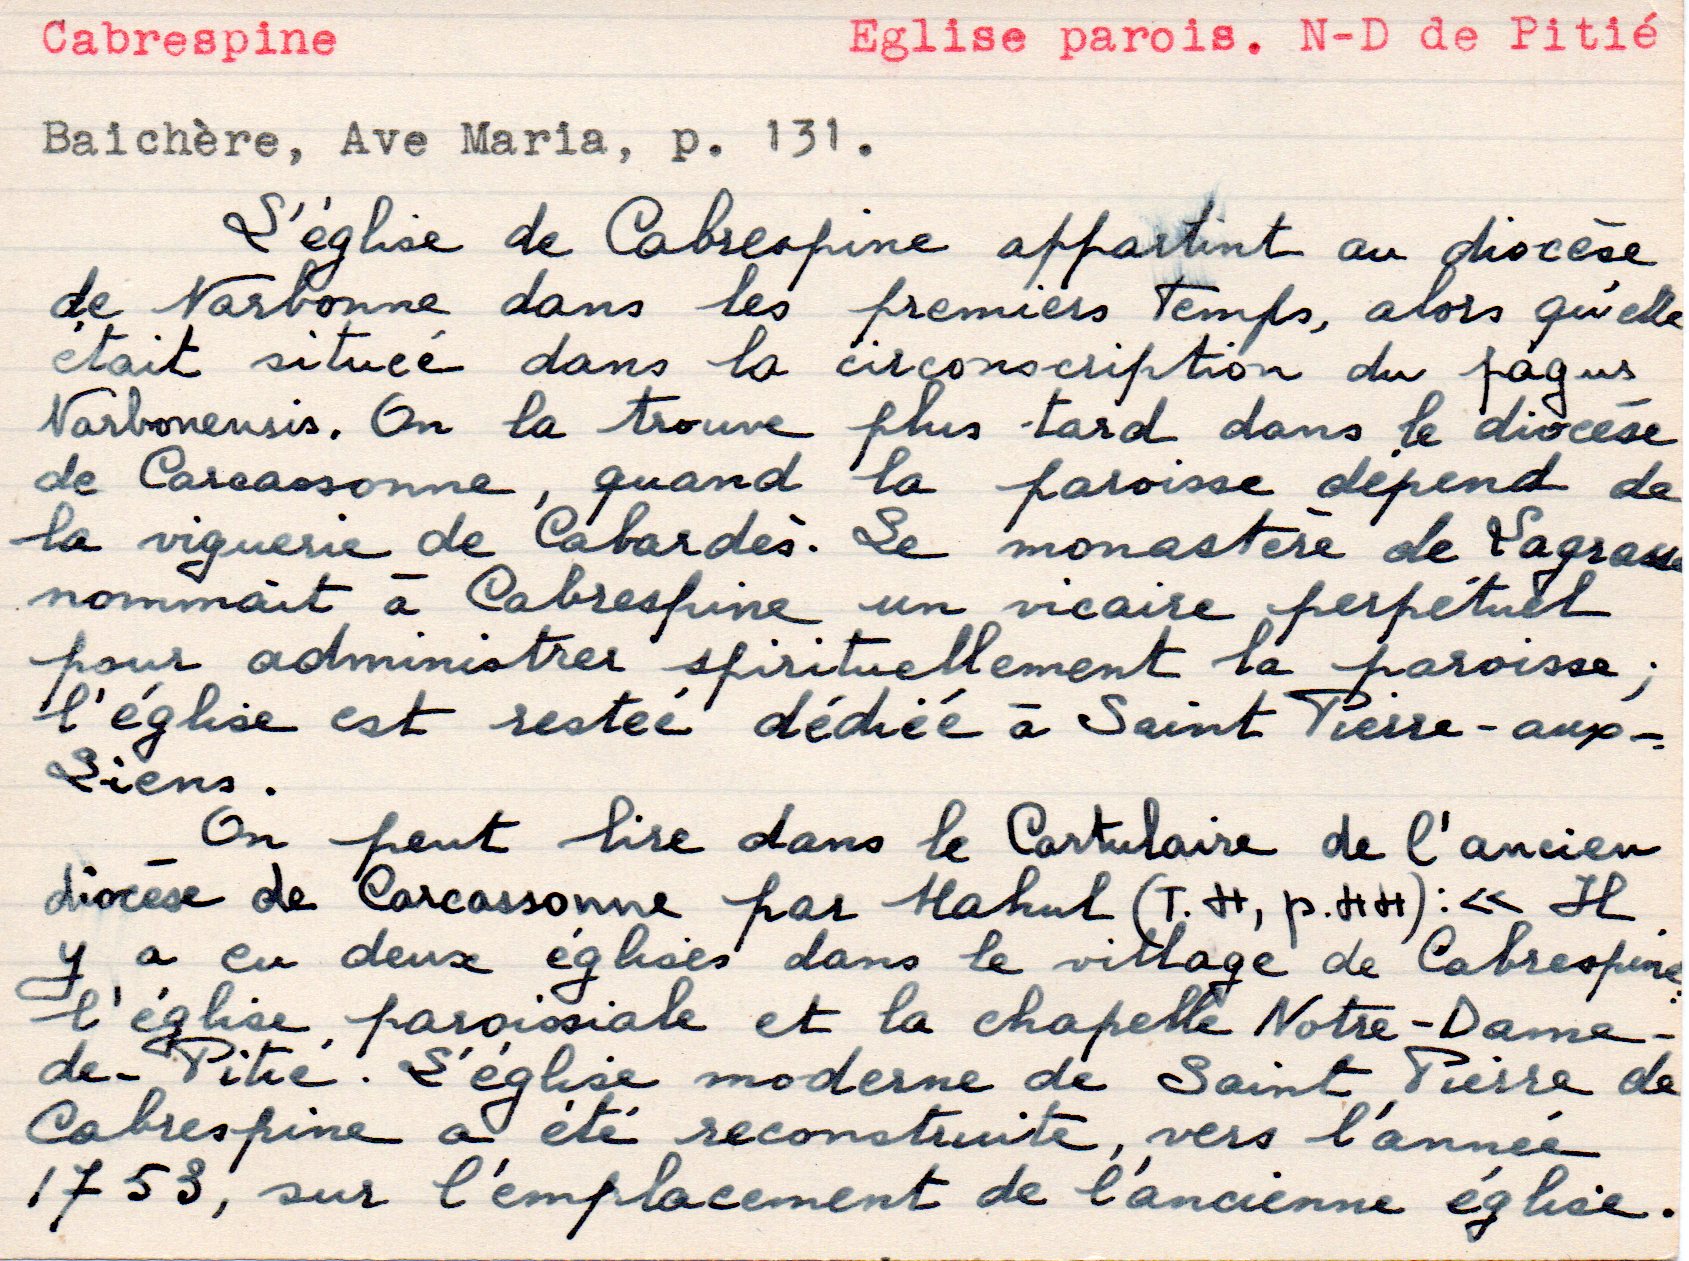 Cabrespine Eglise parois. N-D de Pitié
Baichère, Ave Maria, p. 131.
L'église de Cabrespine appartint au diocèse
de Narbonne dans les premiers temps, alors qu'elle
était située dans la circonscription du pagus
Narbonensis. On la trouve plus tard dans le diocèse
de Carcassonne, quand la paroisse dépend de
la viguerie de Cabardès. Le monastère de Lagrasse
nommait à Cabrespine un vicaire perpétuel
pour administrer spirituellement la paroisse ;
l'église est restée dédiée à Saint Pierre-aux-
Liens.
On peut lire dans le Cartulaire de l'ancien
diocèse de Carcassonne par Mahul (T. , p. ) : « Il
y a eu deux églises dans le village de Cabrespine :
l'église paroissiale et la chapelle Notre-Dame-
de-Pitié. L'église moderne de Saint Pierre de
Cabrespine a été reconstruite, vers l'année
1753, sur l'emplacement de l'ancienne église.